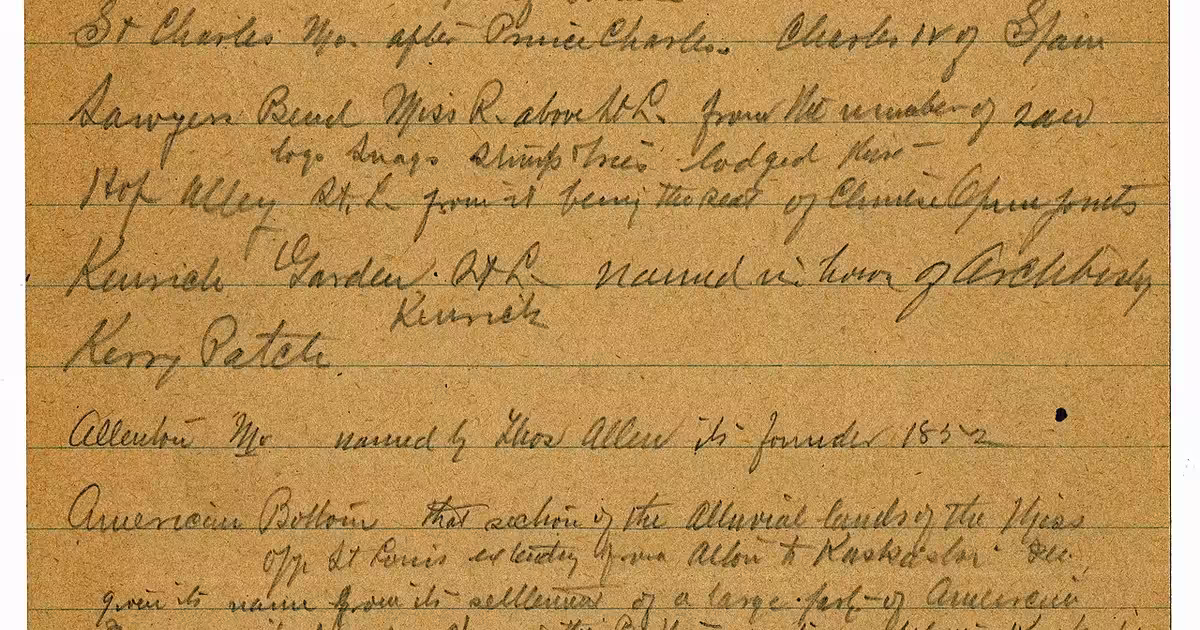 St Charles Mo. after Prince Charles. Charles IV of Spain
Sawyers Bend Miss R. above St L. from the number of saw
logs snags stumps trees lodged there
Hop Alley St. L from it being the seat of Chinese Opium joints
Kenrick Garden. St L named in honor of Archbishop
Kenrick
Kerry Patch
Allenton Mo named by Thos Allen its founder 1852
American Bottom that section of the Alluvial lands of the Miss
opp St Louis extending from Alton to Kaskaskia
given its name from its settlement of a large part of American